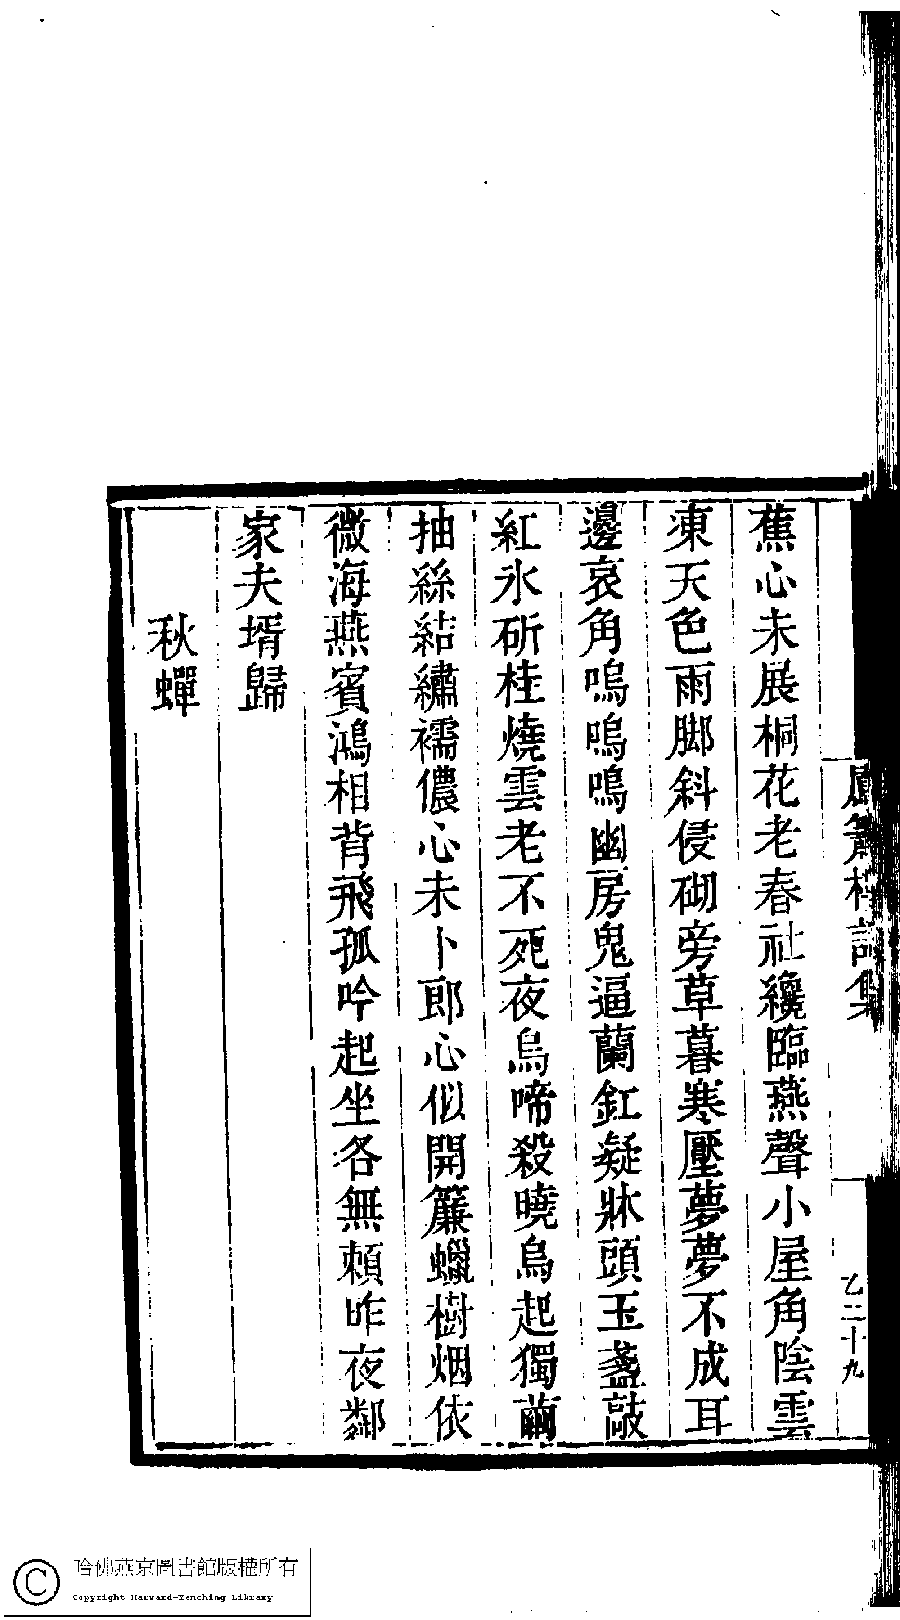 蕉心未展桐花老春社纔臨燕聲小屋角陰雲
凍天色雨脚斜侵砌旁草暮寒壓夢夢不成耳
邊哀角嗚嗚嗚幽房鬼逼蘭釭凝牀頭玉盞敲
紅氷斫桂燒雲老不死夜烏啼殺曉烏起獨繭
抽絲結繡襦儂心未卜郎心似開簾蠟樹烟依
微海燕賓鴻相背飛孤吟起坐各無賴昨夜鄰
家夫壻歸
秋蟬
集
乙二十九
哈佛燕京圖書館版權所有
Copyright Harvard-Yenching Library